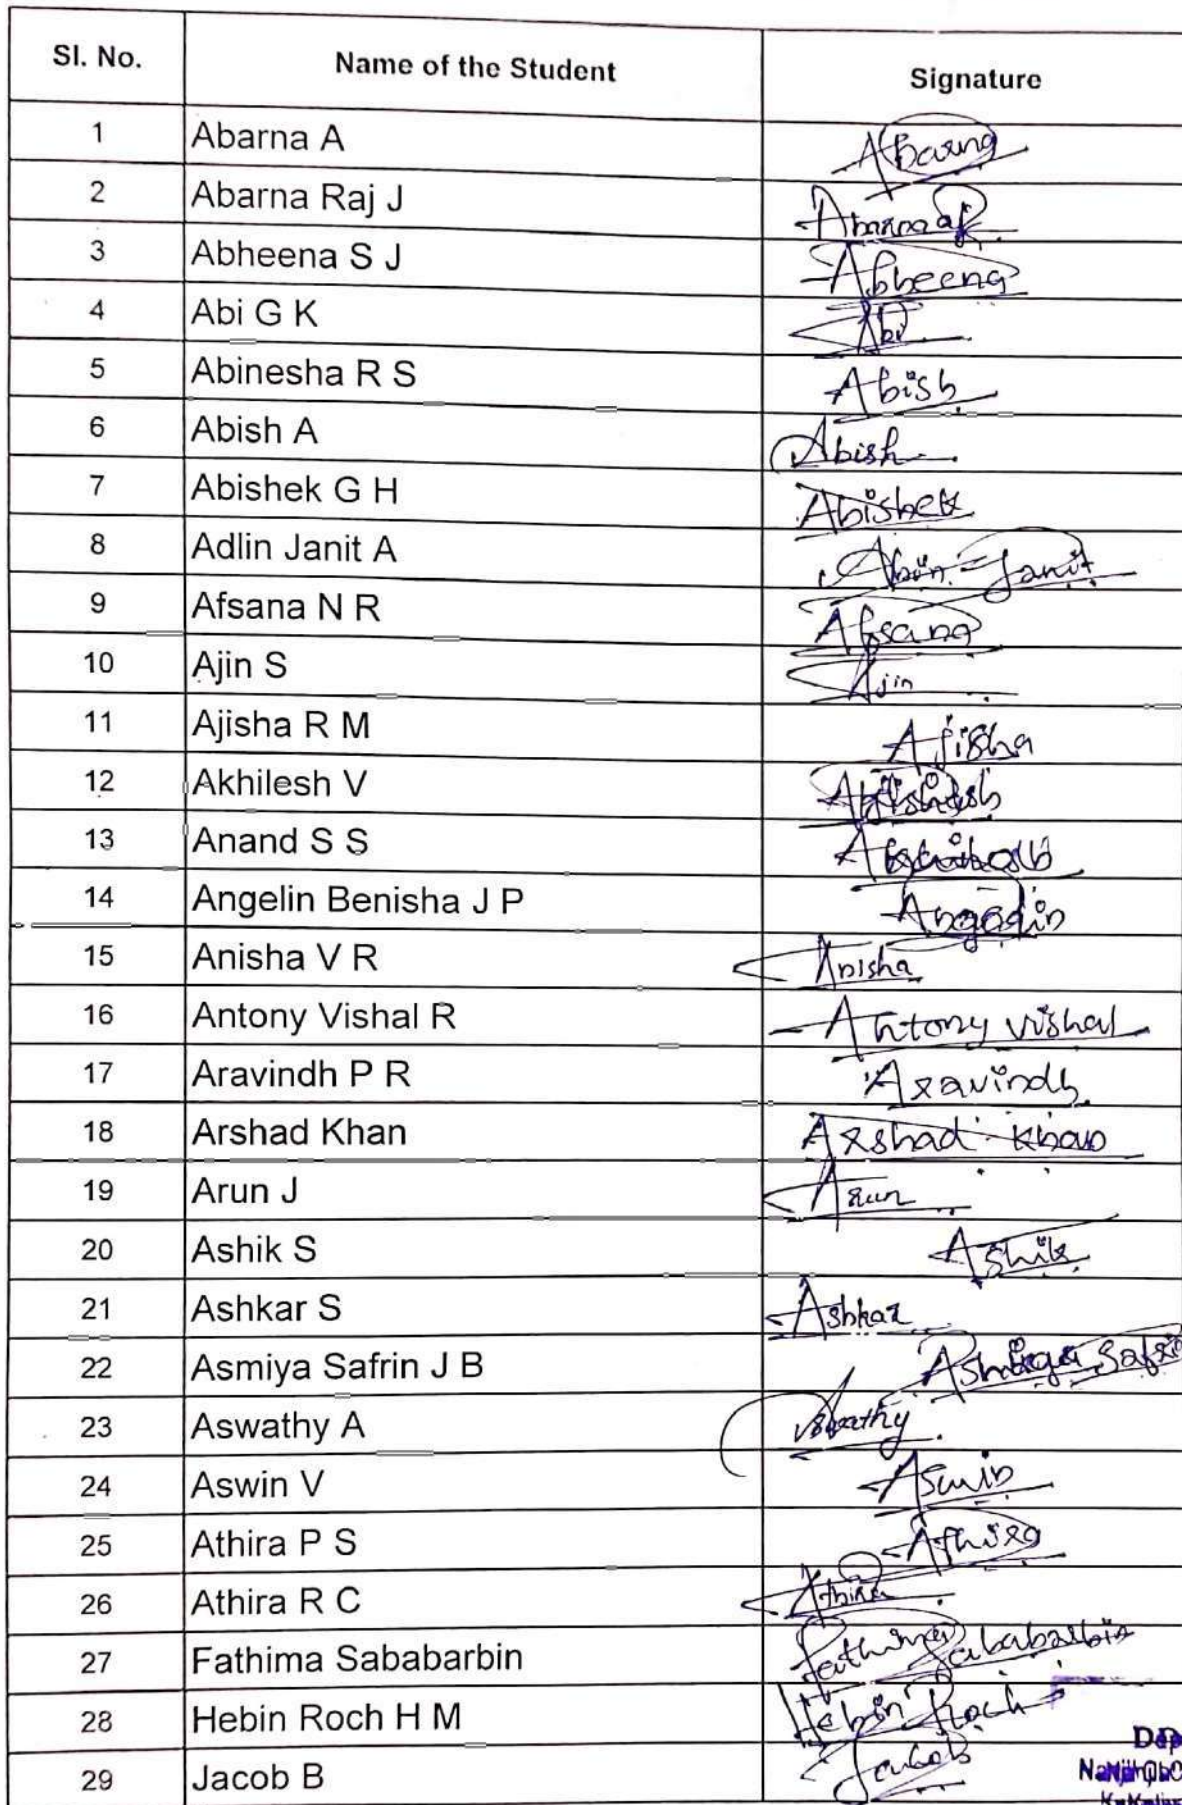 Sl. No. Name of the Student Signature
1 Abarna A Abarna
2 Abarna Raj J Abarna
3 Abheena S J Abheena
4 Abi G K Abi
5 Abinesha R S Abish
6 Abish A Abish
7 Abishek G H Abishek
8 Adlin Janit A Janit
9 Afsana N R Afsana
10 Ajin S Ajin
11 Ajisha R M Ajisha
12 Akhilesh V
13 Anand S S
14 Angelin Benisha J P Angelin
15 Anisha V R Anisha
16 Antony Vishal R Antony vishal
17 Aravindh P R Aravindh
18 Arshad Khan Arshad Khan
19 Arun J Arun
20 Ashik S Ashik
21 Ashkar S Ashkar
22 Asmiya Safrin J B
23 Aswathy A Aswathy
24 Aswin V Aswin
25 Athira P S Athira
26 Athira R C Athira
27 Fathima Sababarbin Fathima Sababarbin
28 Hebin Roch H M Hebin Roch
29 Jacob B Jacob